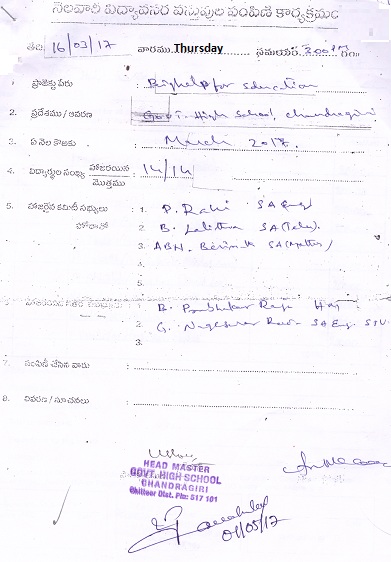 నెలవారీ విద్యావసర వస్తువుల పంపిణి కార్యక్రమం
తేది: 16/03/17 వారము Thursday సమయం 3.00
ప్రాజెక్టు పేరు : Bighelp for education
2. ప్రదేశము / ఆవరణ : Govt. High School, Chandragiri
3. ఏ నెల కొఱకు : March 2017.
4. విద్యార్థుల సంఖ్య హాజరయిన / మొత్తము : 14/14
5. హాజరైన కమిటీ సభ్యులు : 1. P. Rani SA Eng
హోదాతో 2. B. Lalitha SA (Telu)
3. ABN. SA (Maths)
4.
5.
1. B. Prabhakar Raju Hm
2. G. Nageswar Rao SA Eng. STU
3.
7. పంపిణీ చేసిన వారు :
8. వివరణ / సూచనలు :
HEAD MASTER
GOVT. HIGH SCHOOL
CHANDRAGIRI
Chittoor Dist. Pin: 517 101
01/05/17